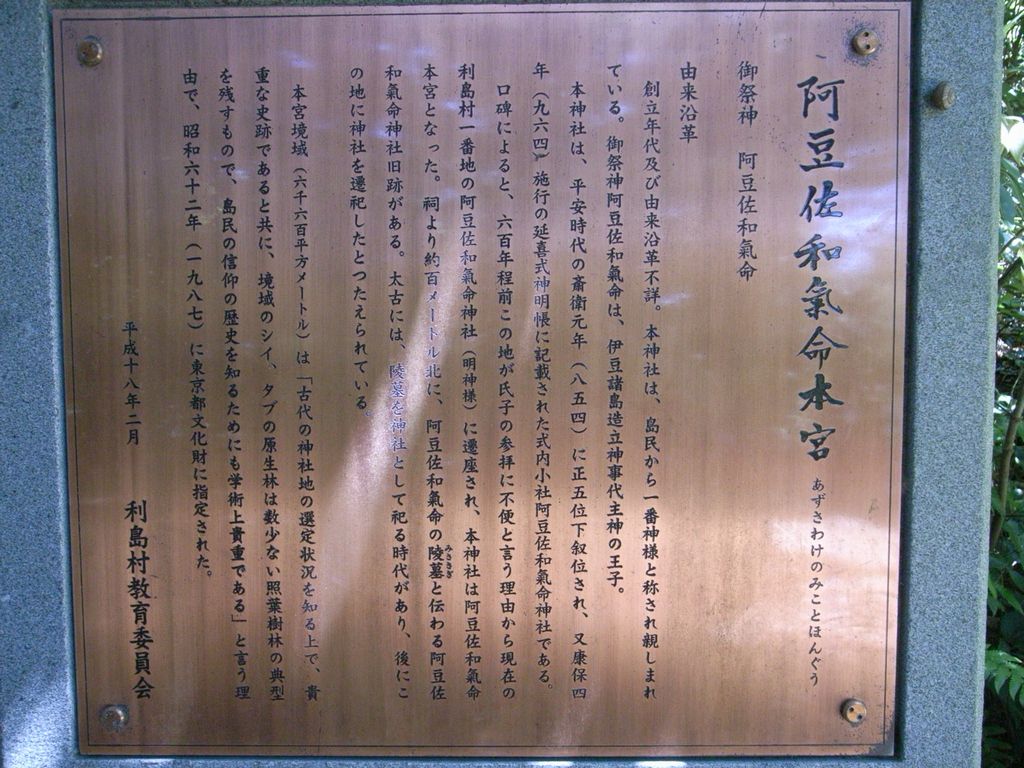 阿豆佐和氣命本宮 あずさわけのみことほんぐう
御祭神 阿豆佐和氣命
由来沿革
創立年代及び由来沿革不詳。本神社は、島民から一番神様と称され親しまれ
ている。御祭神阿豆佐和氣命は、伊豆諸島造立神事代主神の王子。
本神社は、平安時代の斎衛元年（八五四）に正五位下叙位され、又康保四
年（九六四）施行の延喜式神明帳に記載された式内小社阿豆佐和氣命神社である。
口碑によると、六百年程前この地が氏子の参拝に不便と言う理由から現在の
利島村一番地の阿豆佐和氣命神社（明神様）に遷座され、本神社は阿豆佐和氣命
本宮となった。祠より約百メートル北に、阿豆佐和氣命の陵墓と伝わる阿豆佐
みささぎ
和氣命神社旧跡がある。太古には、陵墓を神社として祀る時代があり、後にこ
の地に神社を遷祀したとつたえられている。
本宮境域（六千六百平方メートル）は「古代の神社地の選定状況を知る上で、貴
重な史跡であると共に、境域のシイ、タブの原生林は数少ない照葉樹林の典型
を残すもので、島民の信仰の歴史を知るためにも学術上貴重である」と言う理
由で、昭和六十二年（一九八七）に東京都文化財に指定された。
平成十八年二月 利島村教育委員会